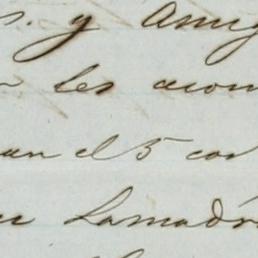 s. y Amig
les acom
an el 5 con
Lamadr